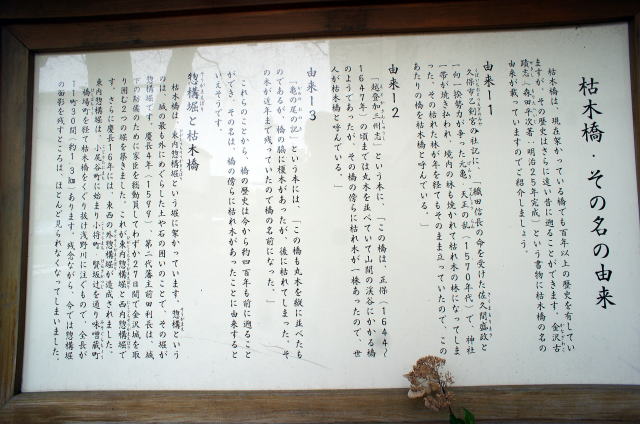 枯木橋・その名の由来
枯木橋は、現在架かっている橋でも百年以上の歴史を有してい
ますが、その歴史はさらに遠い昔に遡ることができます。金沢古
蹟志(森田平次著・明治25年完成)という書物に枯木橋の名の
由来が載っていますのでご紹介しましょう。
由来-1
久保市乙剣宮の社記に、「織田信長の命を受けた佐久間盛政と
一向一揆勢力が争った元亀、天正の乱(1570年代)で、神社
一帯が焼き払われ、境内の林も焼かれて枯れ木の林になってしま
った。その枯れた林が年を経てもそのまま立っていたので、この
あたりの橋を枯木橋と呼んでいる。」
由来-2
「越登加三州志」という本に、「この橋は、正保(1644~
1647年)の頃までは丸木を並べていて山間の渓谷にかかる橋
のようであったが、その橋の傍らに枯れ木が一株あったので、世
人が枯木橋と呼んでいる。」
由来-3
「亀の尾の記」という本には、「この橋も丸木を級に並べたも
のであるが、橋の脇に榎木があったが、後に枯れてしまった。そ
の木が近年まで残っていたので橋の名前になった。」
これらのことから、橋の歴史は今から約四百年も前に遡ること
ができ、その名は、橋の傍らに枯れ木があったことに由来すると
いえそうです。
惣構堀と枯木橋
枯木橋は、東内惣構堀という堀に架かっています。惣構という
のは、城の最も外にめぐらした土や石の囲いのことで、その堀が
惣構堀です。慶長4年(1599)、第二代藩主前田利長は、城
下の防備のために家臣を総動員してわずか27日間で金沢城を取
り囲む2つの堀を築きました。これが東内惣構堀と西内惣構堀で
す。さらに慶長16年には、東西の外惣構堀が造成されました。
東内惣構堀は、小尻谷町に始まり小将町、賢坂辻を通り味噌蔵町、
橋場町を経て枯木橋をくぐり浅野川に注ぐもので、全長が
11町30間(約1.3㎞)あります。残念ながら、今では惣構堀
の面影を残すところは、ほとんど見られなくなってしまいました。